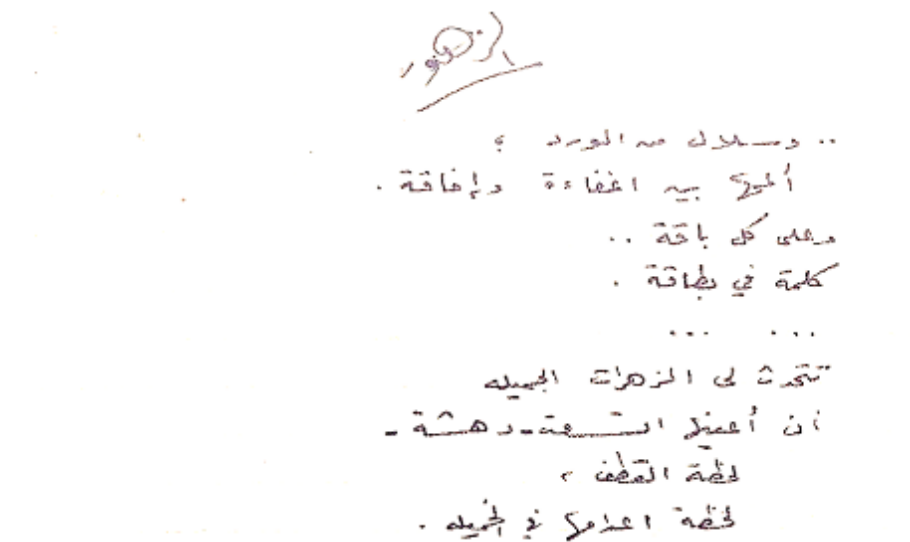 الزهور
.. وسلال من الورد ؟
ألمحها بين اغفاءة وإفاقة .
وعلى كل باقة ..
كلمة في بطاقة .
... ...
تتحدث لى الزهرات الجميله
ان أعينها اتسعت - دهشة -
لحظة القطف ،
لحظة اعدامها في الخميله .